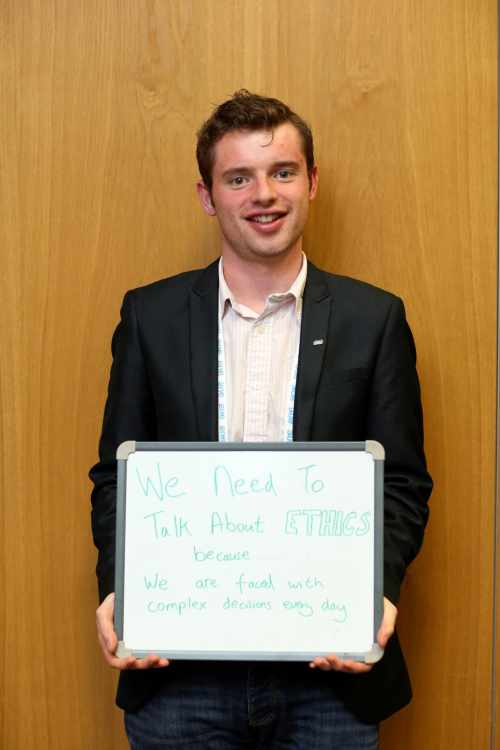 We Need To
Talk About ETHICS
because.....
We are faced with
complex decisions every day